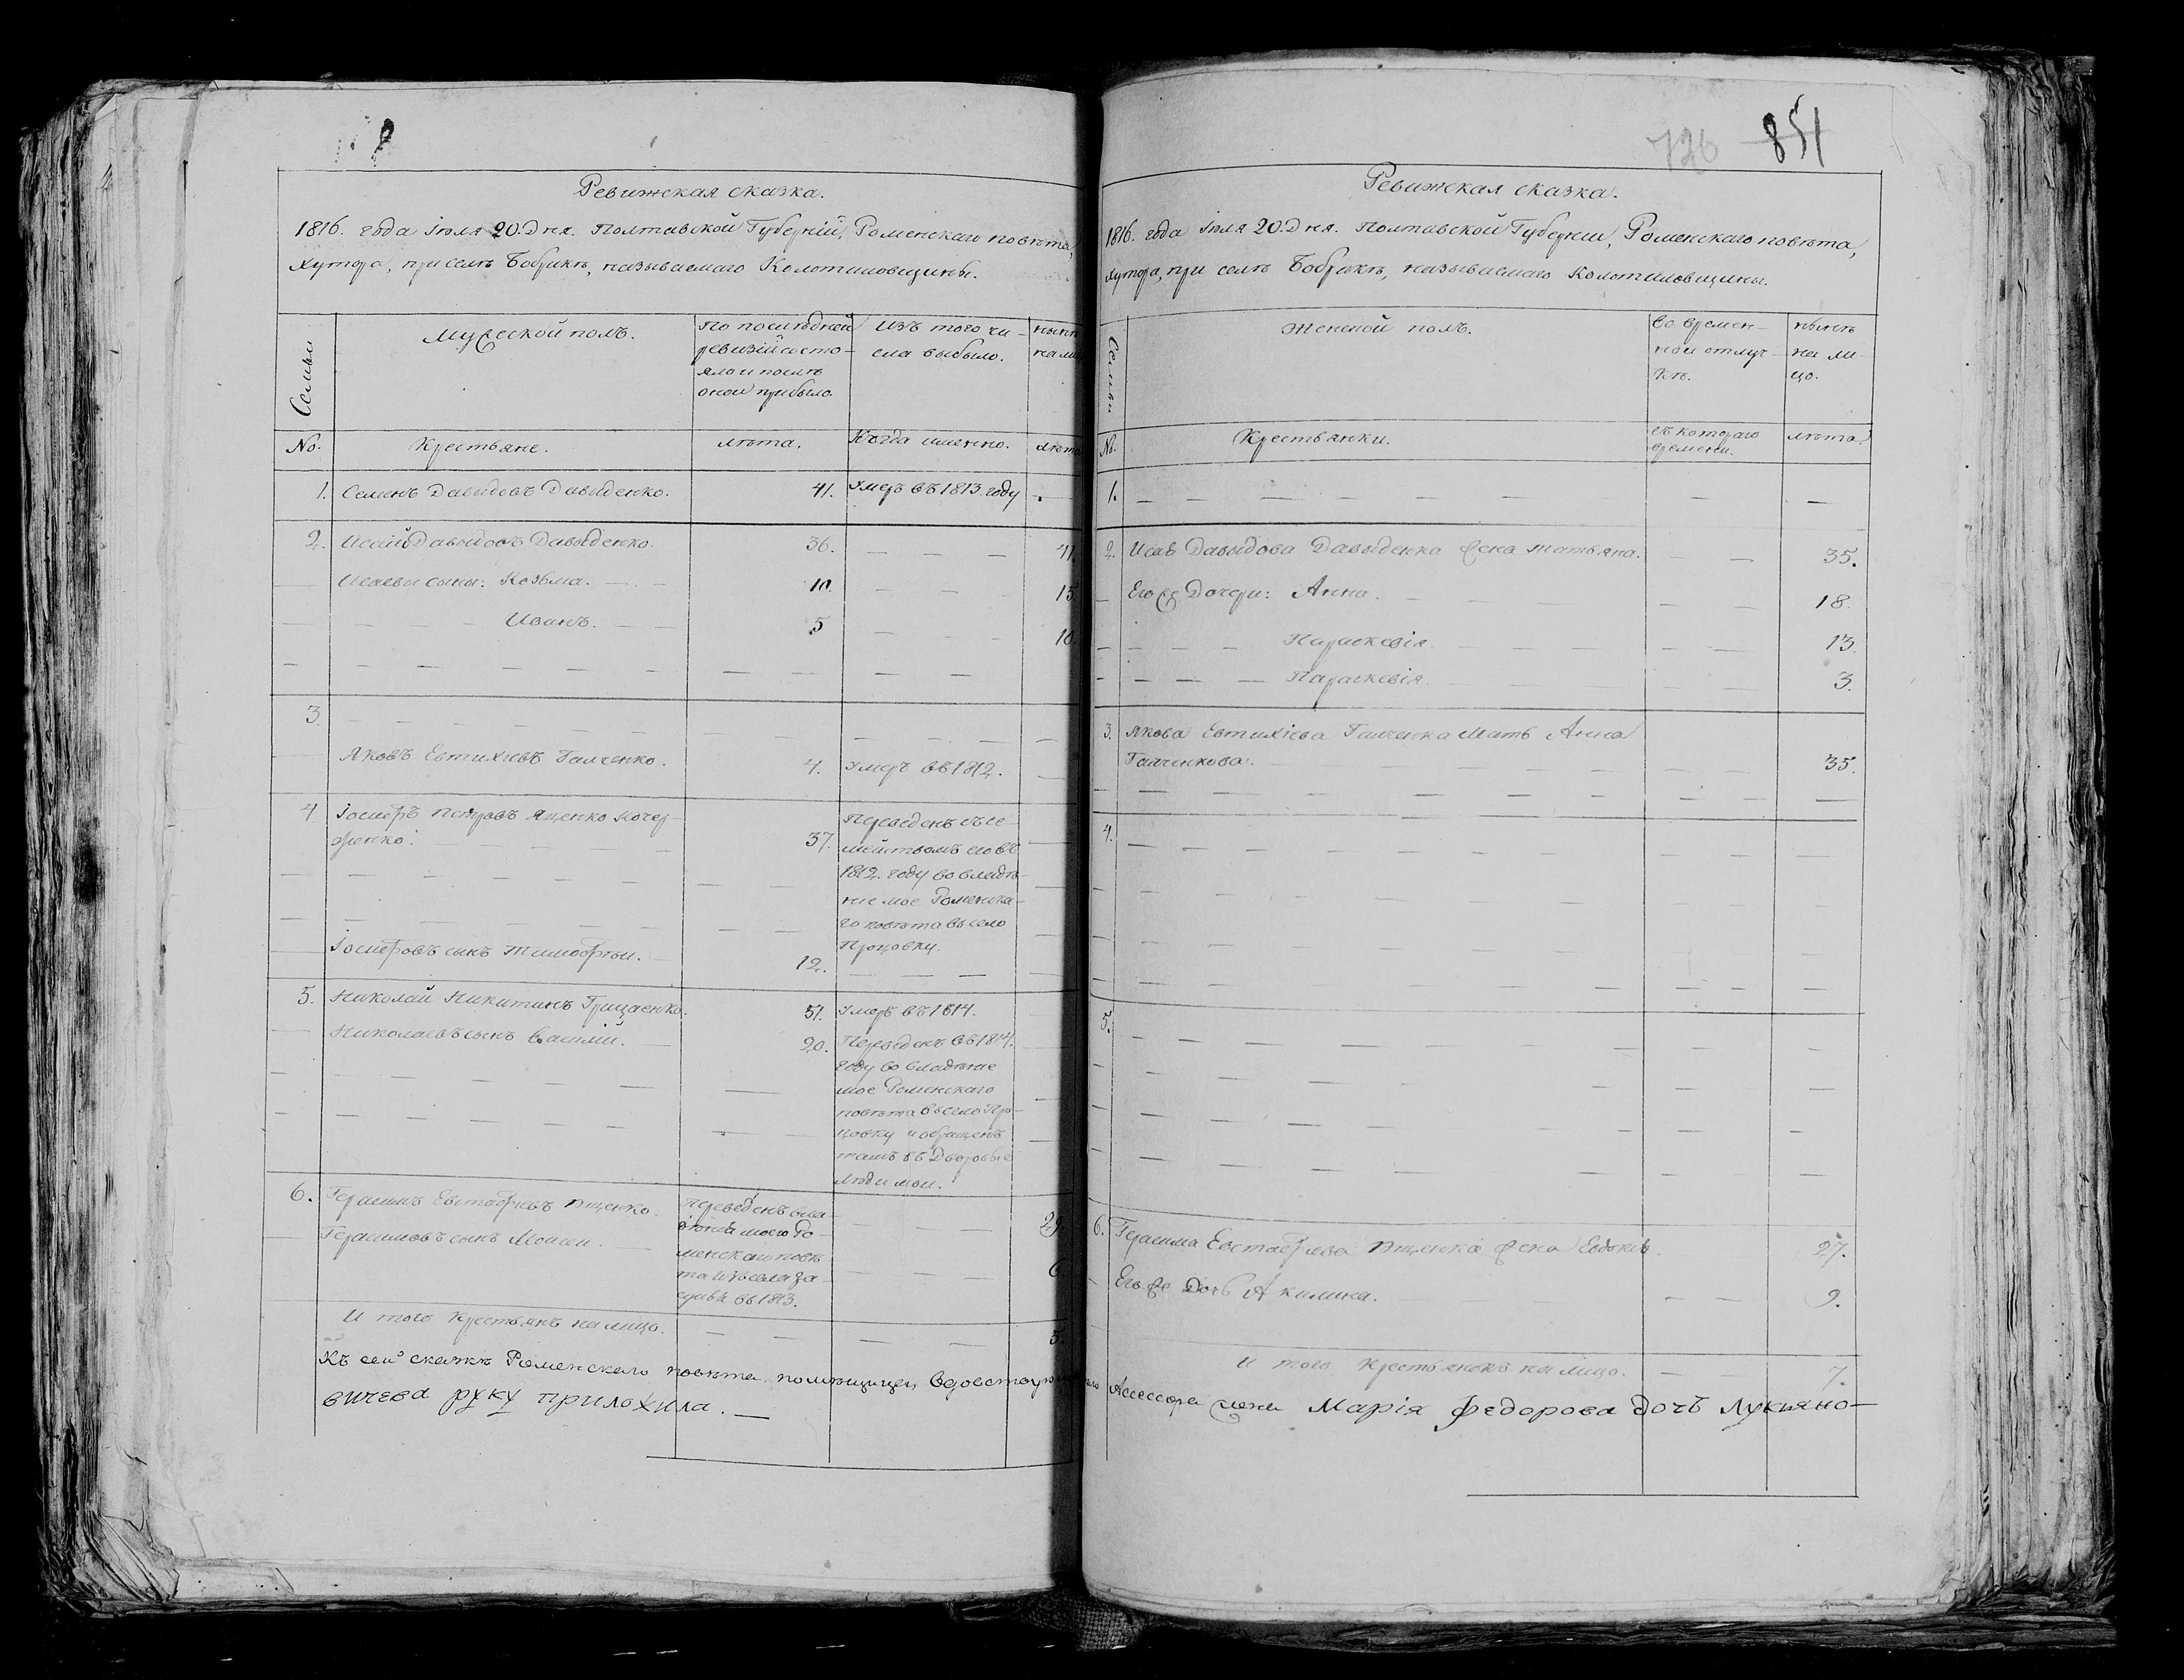 Ревижская сказка.
1816. года Iюля 20. Дня. Полтавской Губернiи, Роменскаго повѣта,
хутора, при селѣ Бобрикѣ, называемаго Колотиловщины.
Семьи
Мужеской полъ.
По послѣдней
ревизiи состо-
яло и послѣ
оной прибыло.
Изъ того чи-
сла выбыло.
нынѣ
на ли
No.
Крестьяне.
лѣта.
Когда именно.
лѣта
1. Семенъ Давыдовъ Давыденко. 41. Умеръ въ 1813. году
2. Исаiй Давыдовъ Давыденко. 36. 41.
Исаевы сыны: Козьма. 10. 15.
Иванъ. 5 10.
3.
Яковъ Евтихiевъ Галченко. 4. Умеръ въ 1812.
4 Iосифъ Петровъ Яценко Кочер-
женко. 37.
Переведенъ съ се-
мействомъ его въ
1812. году во владѣ-
нiе мое Роменска-
го повѣта въ село
Процовку.
Iосифовъ сынъ Тимофѣй. 12.
5. Николай Никитинъ Грицаенко. 51. Умеръ въ 1814.
Николаевъ сынъ Василiй. 20. Переведенъ въ 1814.
году во владѣнiе
мое Роменскаго
повѣта въ село Про-
цовку и обращенъ
тамъ въ Дворовые
люди мои.
6. Герасимъ Евстафiевъ Ященко. 29.
Герасимовъ сынъ Моисей. 6.
Переведенъ вла-
дѣнiя моего Ро-
менскаго повѣ
та изъ села За
въ 1813.
И того Крестьянъ на лицо. 5.
Къ сей сказкѣ Роменскаго повѣта помѣщица
вичева руку приложила.
726 851
Ревижская сказка.
1816. года Iюля 20. Дня. Полтавской Губернiи, Роменскаго повѣта,
хутора, при селѣ Бобрикѣ, называемаго Колотиловщины.
Семьи
Женской полъ.
Во времен-
ной отлуч-
кѣ.
нынѣ
на ли-
цо.
No.
Крестьянки.
съ котораго
времени.
лѣта.
1.
2. Исая Давыдова Давыденка жена Татьяна. 35.
Его же Дочери: Анна. 18.
Параскевiя. 13.
Параскевiя. 3.
3. Якова Евтихiева Галченка Мать Анна
Галченкова. 35.
4.
5.
6. Герасима Евстафiева Ященка жена Евдокiя. 27.
Его же Дочь Акилина. 9.
И того Крестьянокъ на лицо. 7.
Ассессора жена Марiя федорова дочь Лукьяно-